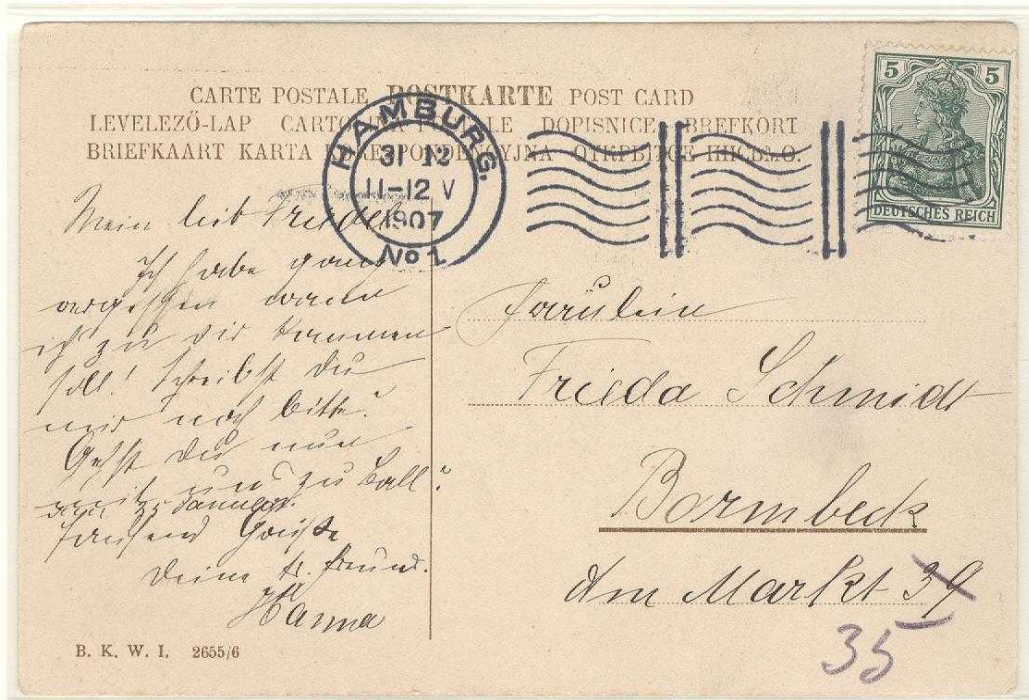 CARTE POSTALE POSTKARTE POST CARD
LEVELEZŐ-LAP DOPISNICE BREFKORT
BRIEFKAART KARTA
HAMBURG.
31 12
11-12 V
1907
No 1
5 5
DEUTSCHES REICH
Mein lieb
Ich habe ganz
vergessen wann
ich zu dir kommen
soll! Schreibst Du
mir noch bitte?
Gehst Du nun
mit uns zu Ball?
Tausend Grüße
Deine tr. Freund.
Hanna
Fräulein
Frieda Schmidt
Barmbeck
Am Markt 39
35
B. K. W. I. 2655/6